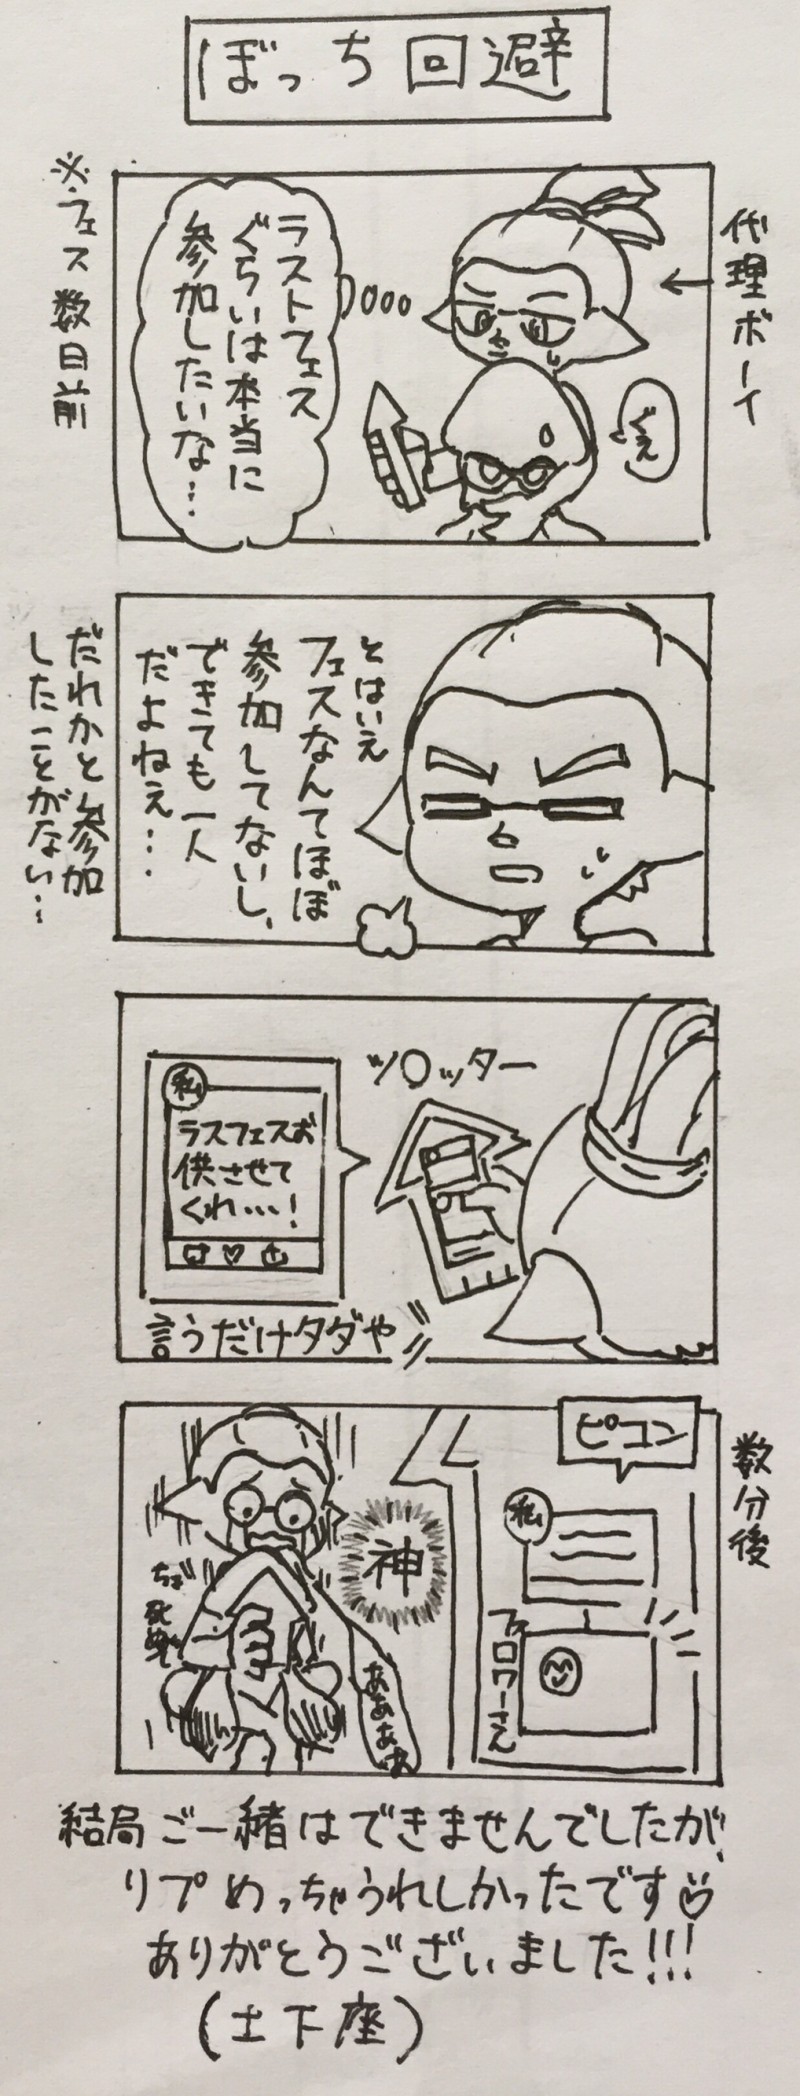 ぼっち回避
代理ボーイ
※フェス数日前
ラストフェス
ぐらいは本当に
参加したいな…
ぐえ
とはいえ
フェスなんてほぼ
参加してないし、
できても一人
だよねぇ…
だれかと参加
したことがない…
ツ○ッター
私
ラスフェスお
供させて
くれ…!
言うだけタダや
数分後
ピコン
私
フォロワーさん
神
ああああ
結局ご一緒はできませんでしたが、
リプめっちゃうれしかったです♡
ありがとうございました!!!
(土下座)